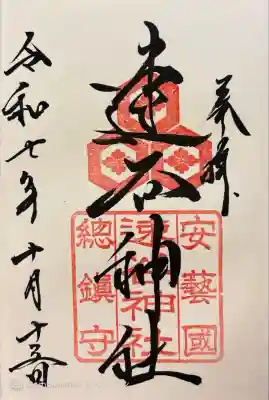 奉拝
速谷神社
安藝國
速谷神社
總鎮守
令和七年十月十日